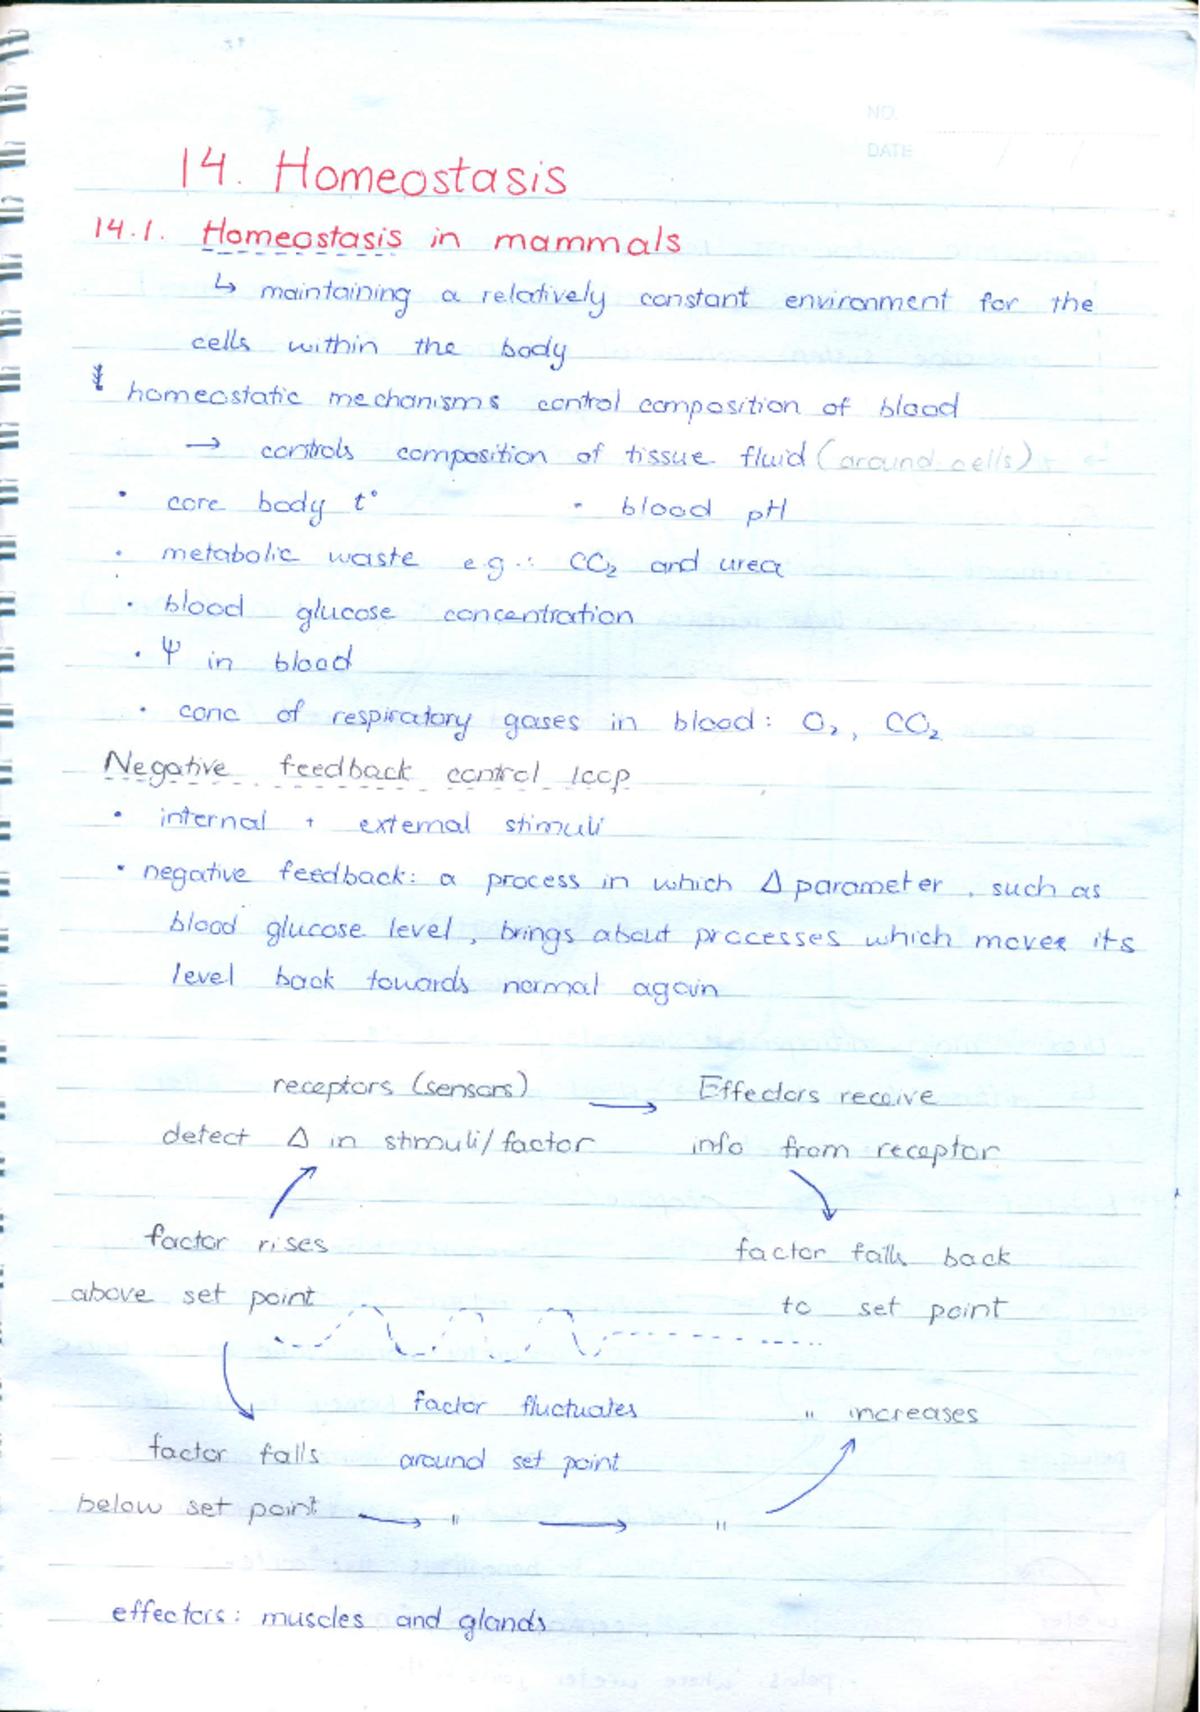 NO.
DATE / /
14. Homeostasis
14.1. Homeostasis in mammals
↳ maintaining a relatively constant environment for the
cells within the body
homeostatic mechanisms control composition of blood
→ controls composition of tissue fluid (around cells)
• core body t° • blood pH
• metabolic waste e.g.: CO₂ and urea
• blood glucose concentration
• Ψ in blood
• conc of respiratory gases in blood: O₂, CO₂
Negative feedback control loop
• internal + external stimuli
• negative feedback: a process in which Δ parameter, such as
blood glucose level, brings about processes which moves its
level back towards normal again
receptors (sensors) → Effectors receive
detect Δ in stimuli/factor info from receptor
factor rises factor falls back
above set point to set point
factor fluctuates " increases
factor falls around set point
below set point → " → "
effectors: muscles and glands